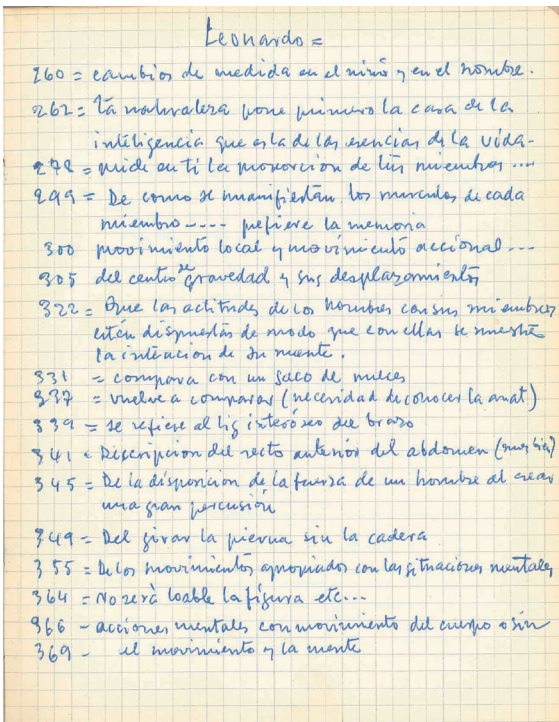 Leonardo =
260 = cambios de medida en el niño y en el hombre.
262 = La naturaleza pone primero la casa de la
inteligencia que esla de las esencias de la vida-
278 = mide en ti la proporcion de tus miembros ....
299 = De como se manifiestan los musculos de cada
miembro ---- refiere la memoria
300 movimiento local y movimiento accional ...
305 del centro de gravedad y sus desplazamientos
322 = Que las actitudes de los hombres con sus miembros
esten dispuestas de modo que con ellas se muestre
la intencion de su mente.
331 = compara con un saco de nueces
337 = vuelve a comparar (necesidad de conocer la anat)
339 = se refiere al lig interóseo del brazo
341 = Descripcion del recto anterior del abdomen (muy bien)
345 = De la disposicion de la fuerza de un hombre al crear
una gran percusión
349 = Del girar la pierna sin la cadera
355 = De los movimientos apropiados con las situaciones mentales
364 = No será loable la figura etc...
366 - acciones mentales con movimiento del cuerpo o sin
369 - el movimiento y la mente